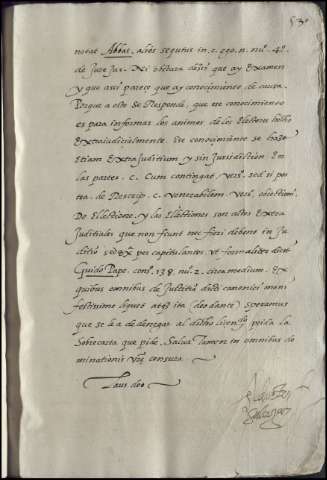 notat Abbas. alios sequutus in. c. ego. n. nu. 4º.
de jure jur. Ni obstara desir que ay examen
y que assi parece que ay conocimiento de causa.
Porque a esto se Responde, que este conocimiento
es para informar los animos de los electores hecho
extrajudicialmente. Este conocimiento se haze
etiam extra Juditium y sin Jurisdiction En
las partes. c. Cum contingat vers. sed si pos
tea. de Rescrip. c. venerabilem. vers. obiectioni.
De Electione. y las Electiones son actos Extra
Judiciales que non fiunt nec fieri debent in Ju
ditio sed per capitulantes vt formaliter dicit
Guido Pape. cons. 138. nu. 2. circa medium. Ex
quibus omnibus de Justitia dicti canonici mani
festissime liquet atq ita (deo dante) speramus
que se ha de denegar al dicho licen.do pida la
Sobrecarta que pide. Salua Tamen in omnibus do
minationis vrê censura.
Laus deo.